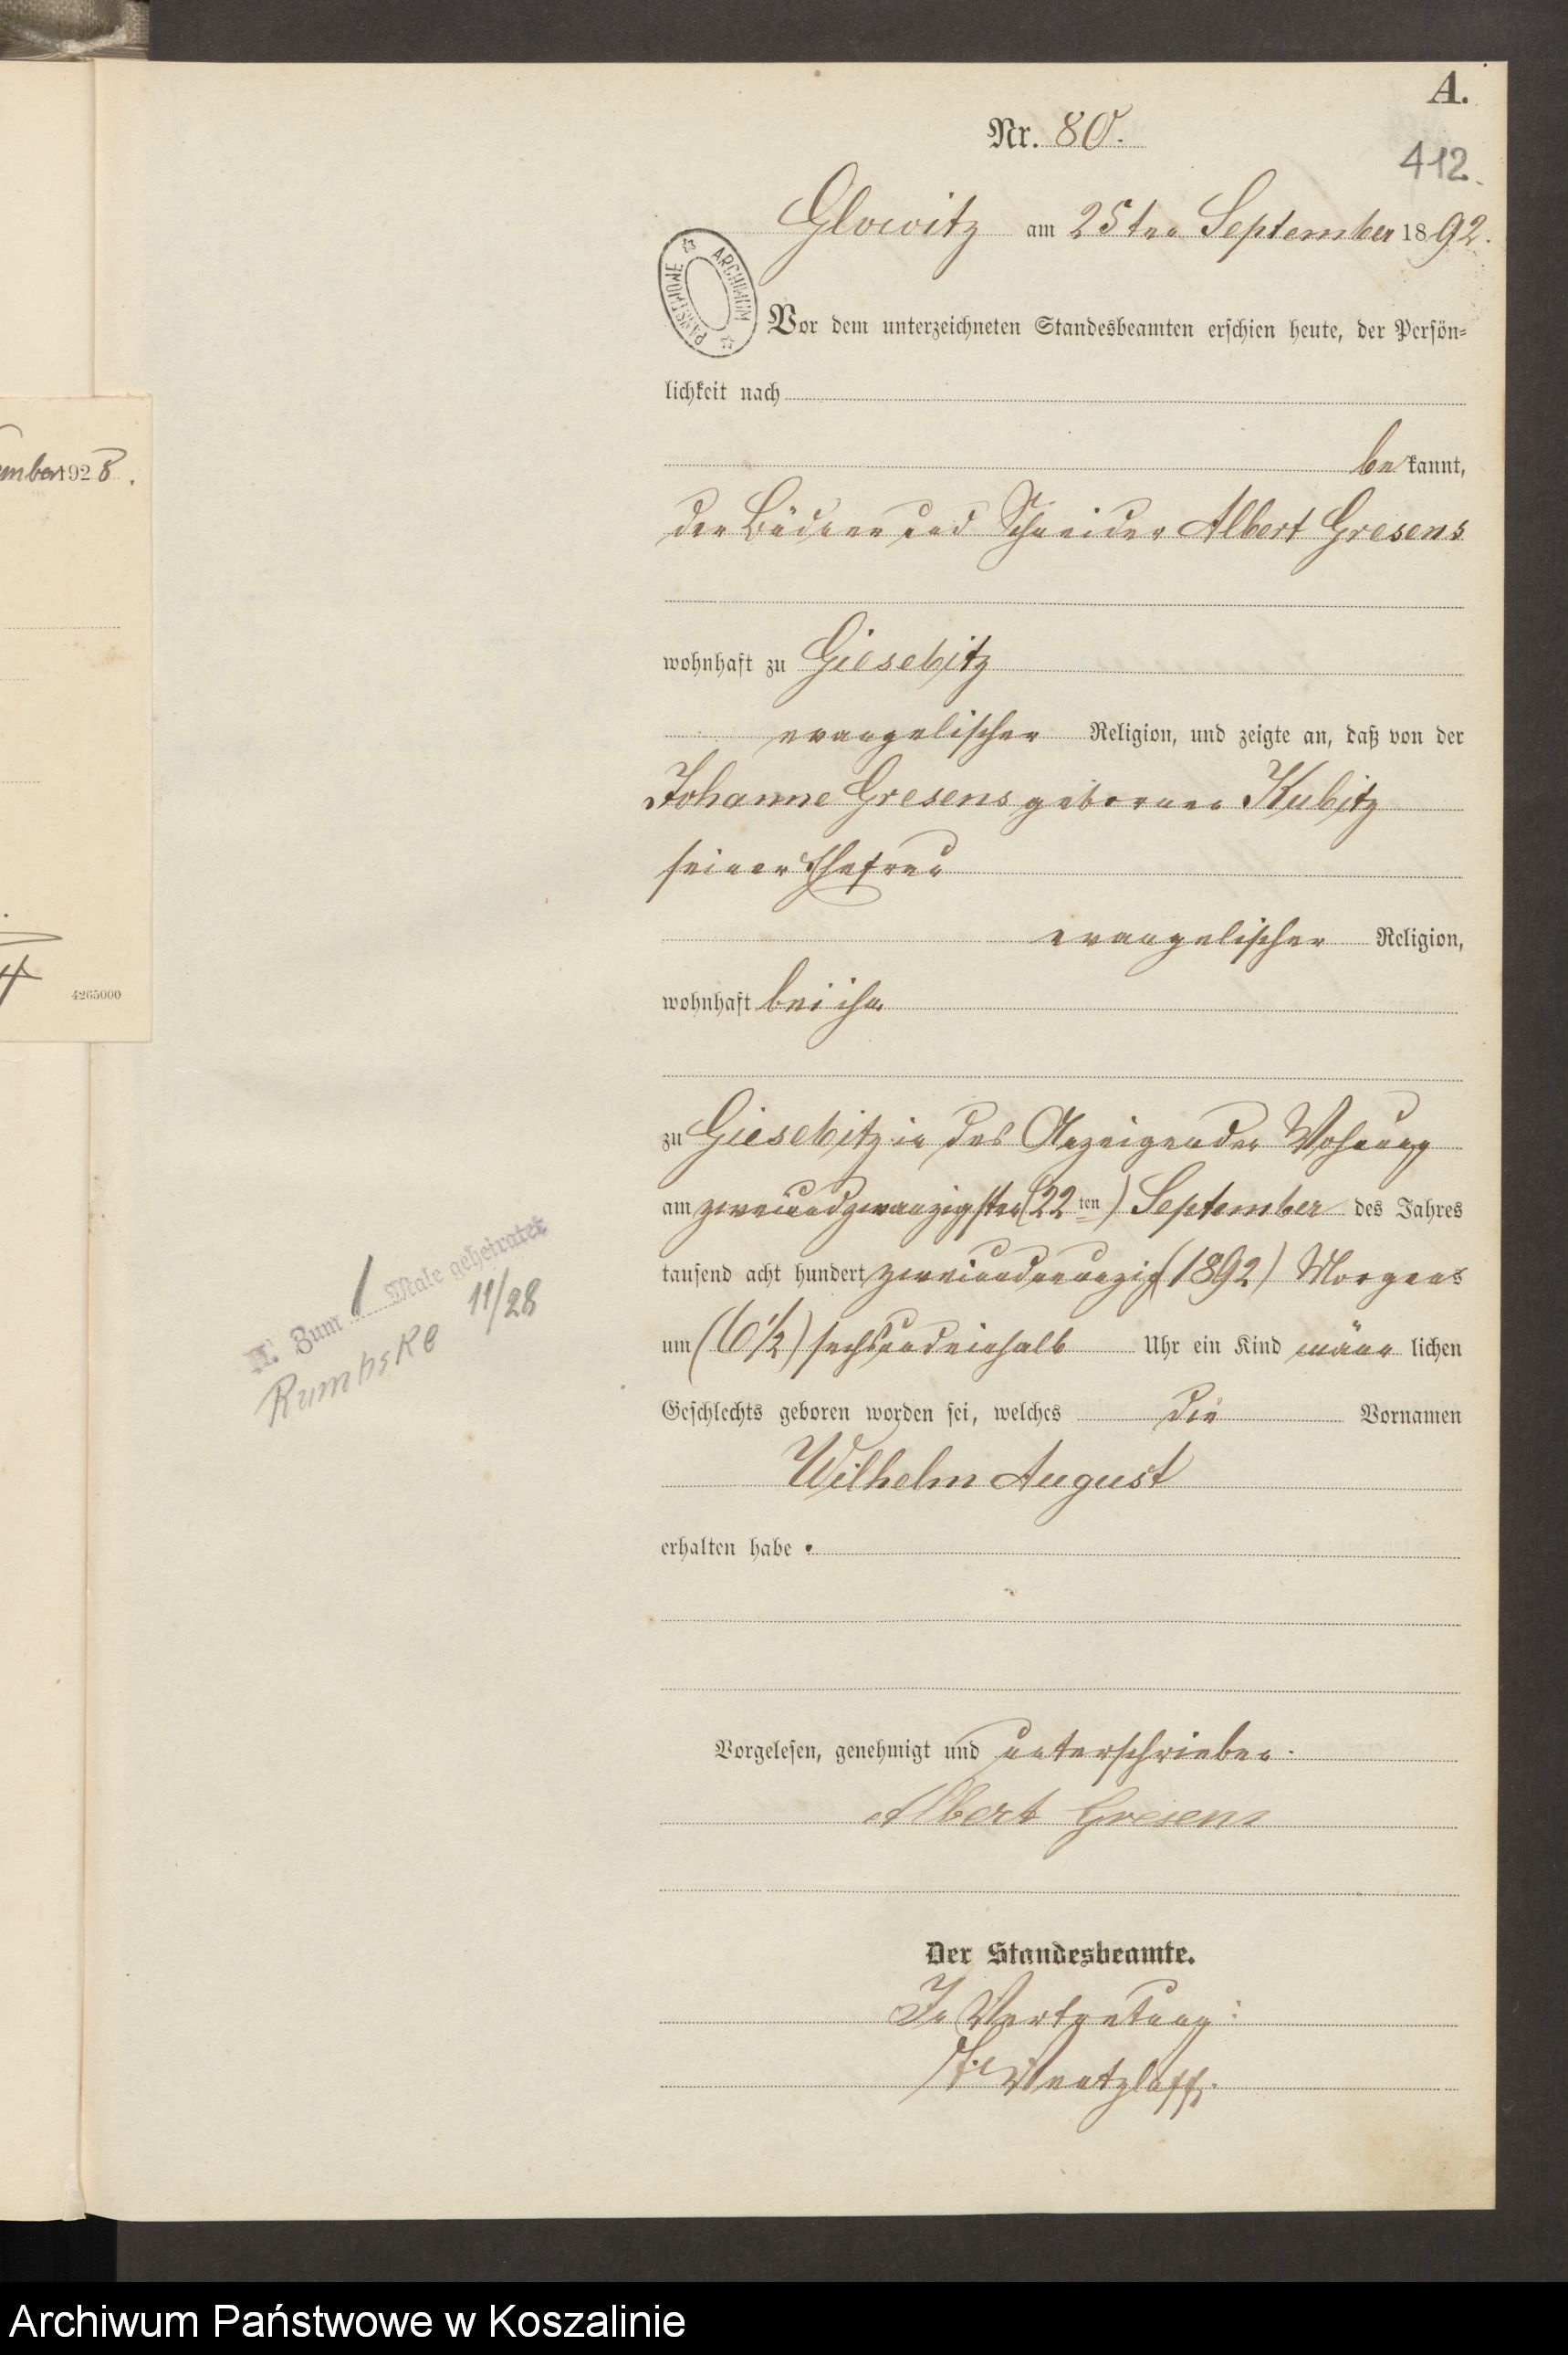 A.
Nr. 80.
412.
Glowitz am 25ten September 1892.
ARCHIWUM PAŃSTWOWE
Vor dem unterzeichneten Standesbeamten erschien heute, der Persön-
lichkeit nach
bekannt,
der Büdner und Schneider Albert Gresens
wohnhaft zu Giesebitz
evangelischer Religion, und zeigte an, daß von der
Johanne Gresens geborenen Kubitz
seiner Ehefrau
evangelischer Religion,
wohnhaft bei ihm
zu Giesebitz in des Anzeigenden Wohnung
am zweiundzwanzigsten (22ten) September des Jahres
tausend acht hundert zweiundneunzig (1892) Morgens
um (6 1/2) sechsundeinhalb Uhr ein Kind männlichen
Geschlechts geboren worden sei, welches die Vornamen
Wilhelm August
erhalten habe.
Vorgelesen, genehmigt und unterschrieben.
Albert Gresens
Der Standesbeamte.
In Vertretung:
Wentzlaff.
H. Zum 1 Male geheiratet
Rumbske 11/28
ember 1928.
4265000
Archiwum Państwowe w Koszalinie